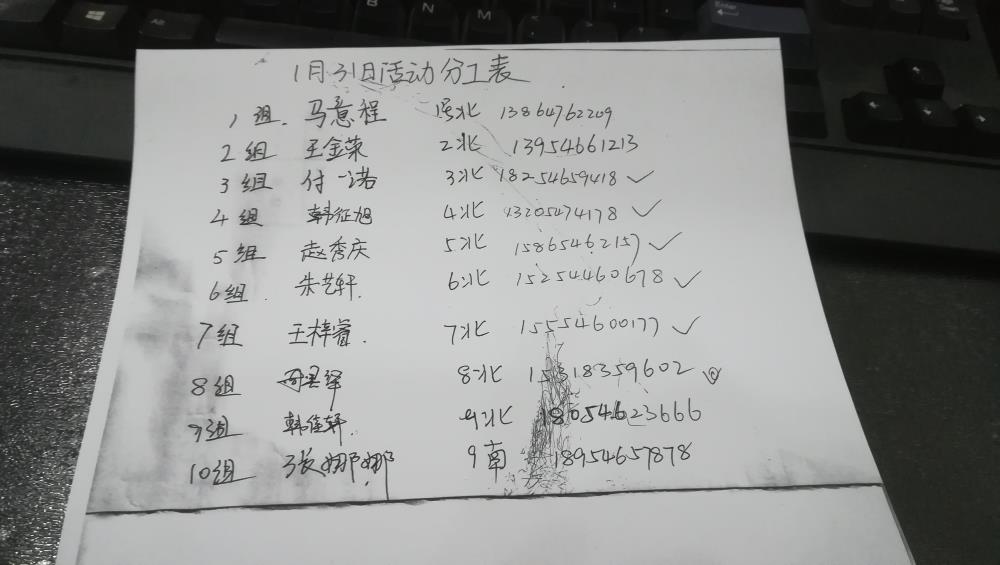 1月31日活动分工表
1组. 马意程 1号北 13864762209
2组 王金荣 2北 13954661213
3组 付一诺 3北 18254659418 ✓
4组 韩征旭 4北 13205474178 ✓
5组 赵秀庆 5北 15865462157 ✓
6组. 朱艺轩. 6北 15254460678 ✓
7组 王梓睿. 7北 15554600177 ✓
8组 8北 15318359602
9组 韩佳轩. 9北 18054623666
10组 张娜娜. 9南 18954657878